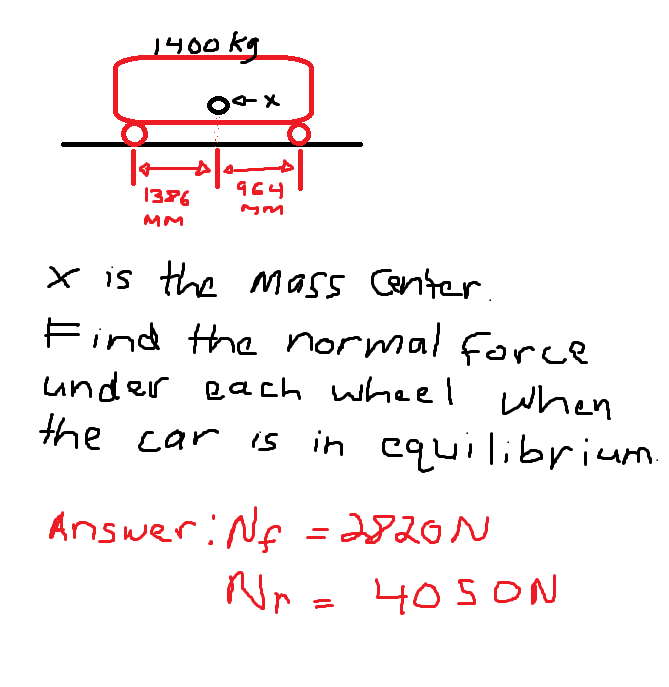 1400 kg
x
1386 964
MM MM
x is the mass center.
Find the normal force
under each wheel when
the car is in equilibrium.
Answer: Nf = 2820N
Nr = 4050N